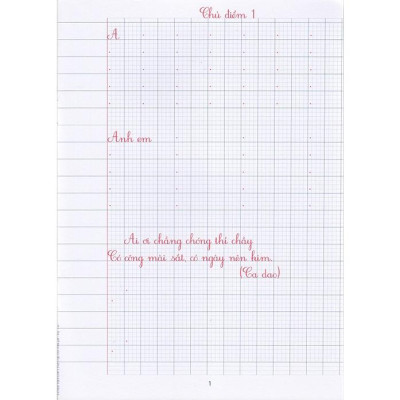 Chủ điểm 1
A
Anh em
Ai ơi chẳng chóng thì chầy
Có công mài sắt, có ngày nên kim.
(Ca dao)
1